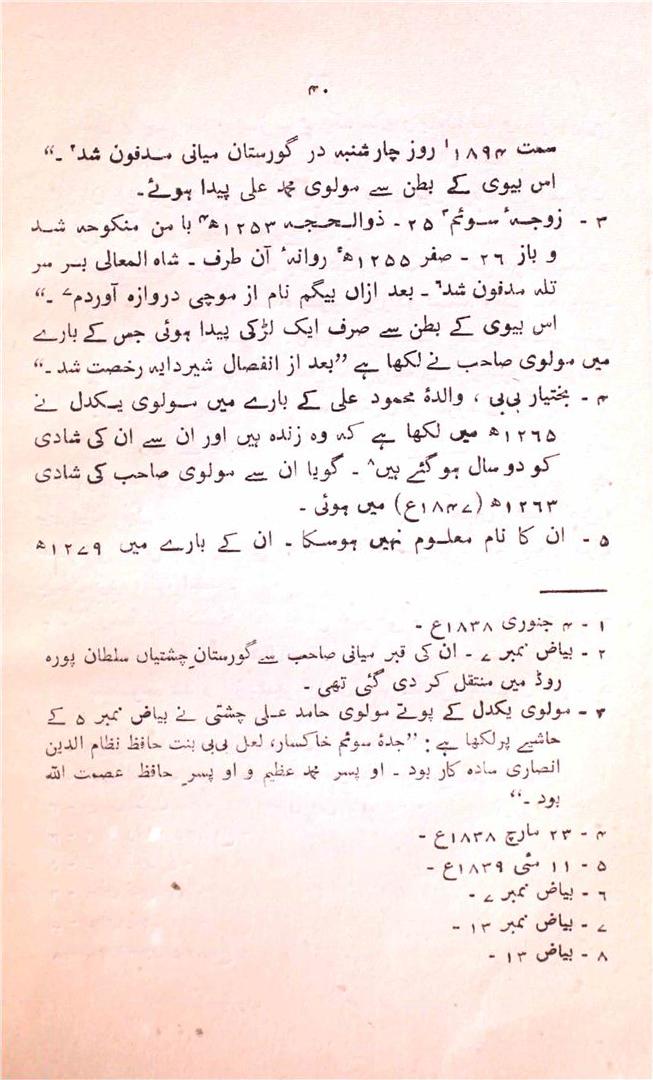 ۴۰
سمت ۱۸۹۴<sup>۱</sup> روز چارشنبہ در گورستان میانی مدفون شد<sup>۲</sup> ۔“
اس بیوی کے بطن سے مولوی محمد علی پیدا ہوئے۔
۳ - زوجۂ سوئم<sup>۳</sup> ۲۵ - ذوالحجہ ۱۲۵۳ھ<sup>۴</sup> با من منکوحہ شد
و باز ۲۶ - صفر ۱۲۵۵ھ<sup>۵</sup> روانۂ آن طرف ۔ شاہ المعالی بر سر
تلہ مدفون شد<sup>۶</sup> ۔ بعد ازاں بیگم نام از موچی دروازہ آوردم<sup>۷</sup> ۔“
اس بیوی کے بطن سے صرف ایک لڑکی پیدا ہوئی جس کے بارے
میں مولوی صاحب نے لکھا ہے ”بعد از انفصال شیردایہ رخصت شد ۔“
۴ - بختیار بی بی ، والدۂ محمود علی کے بارے میں مولوی یکدل نے
۱۲۶۵ھ میں لکھا ہے کہ وہ زندہ ہیں اور ان سے ان کی شادی
کو دو سال ہو گئے ہیں<sup>۸</sup> ۔ گویا ان سے مولوی صاحب کی شادی
۱۲۶۳ھ (۱۸۴۷ع) میں ہوئی ۔
۵ - ان کا نام معلوم نہیں ہوسکا ۔ ان کے بارے میں ۱۲۷۹ھ
۱ - ۴ جنوری ۱۸۳۸ع -
۲ - بیاض نمبر ۷ - ان کی قبر میانی صاحب سے گورستانِ چشتیاں سلطان پورہ
روڈ میں منتقل کر دی گئی تھی ۔
۳ - مولوی یکدل کے پوتے مولوی حامد علی چشتی نے بیاض نمبر ۵ کے
حاشیے پر لکھا ہے : ”جدۂ سوئم خاکسار، لعل بی بی بنت حافظ نظام الدین
انصاری سادہ کار بود ۔ او پسر محمد عظیم و او پسرِ حافظ عصمت اللہ
بود ۔“
۴ - ۲۳ مارچ ۱۸۳۸ع -
۵ - ۱۱ مئی ۱۸۳۹ع -
۶ - بیاض نمبر ۷ -
۷ - بیاض نمبر ۱۳ -
۸ - بیاض ۱۳ -